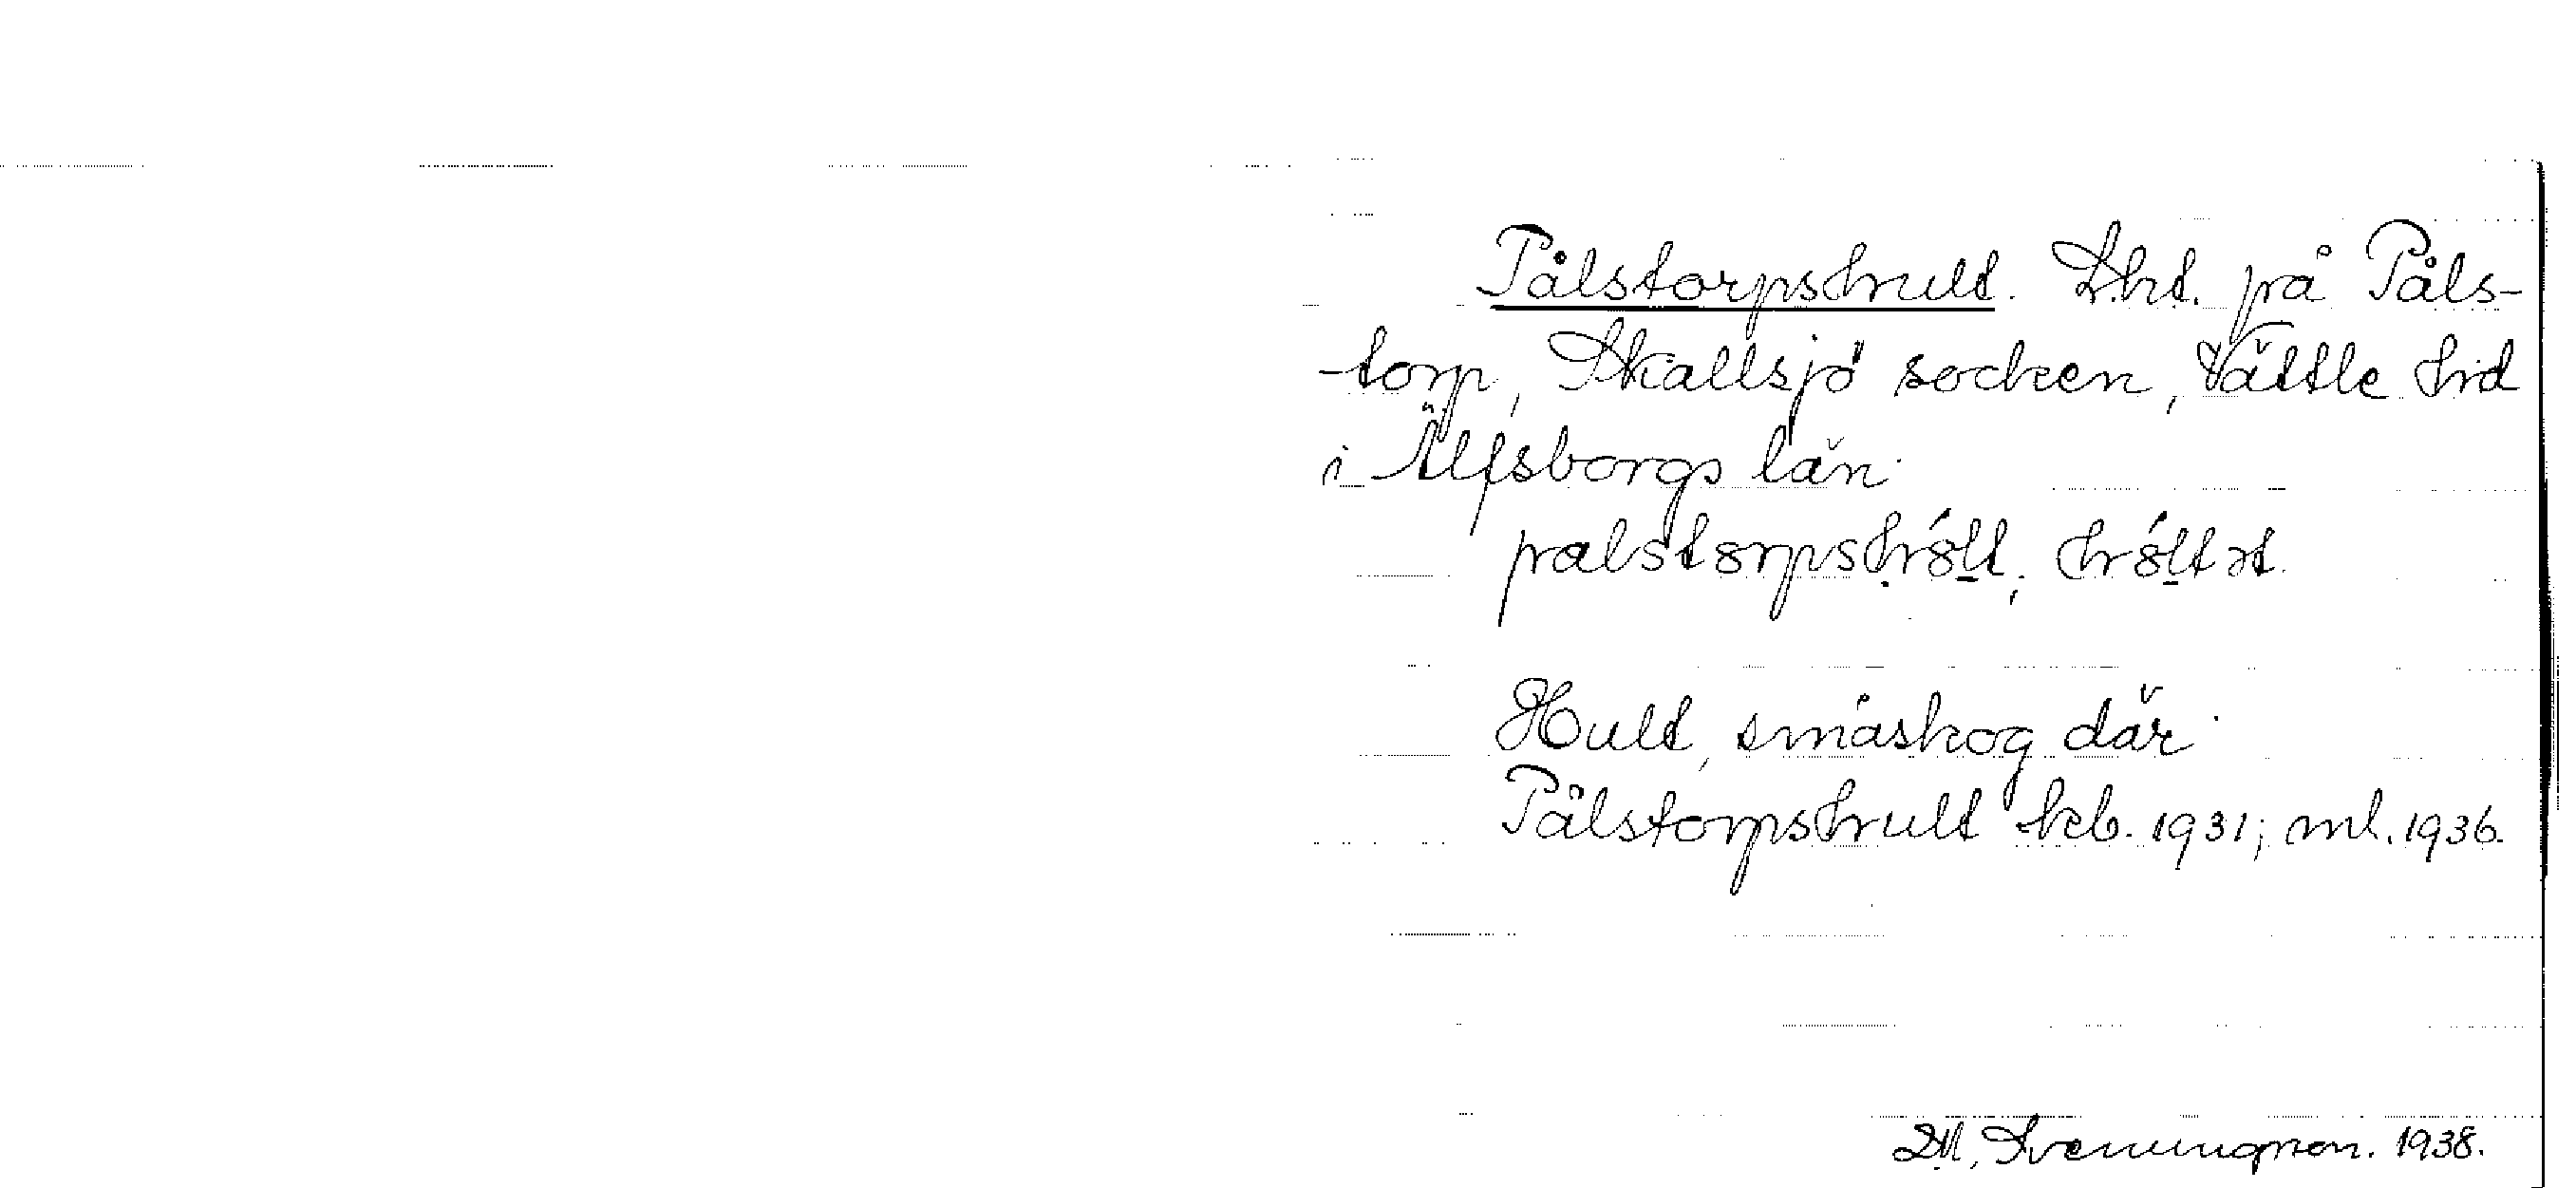 Pålstorpshult. Lht. på Påls-
-torp, Skallsjö socken, Vättle hd
i Älfsborgs län.
palstorpshölt, höltət.
Hult, småskog där.
Pålstorpshult kb. 1931; ml. 1936.
1938.